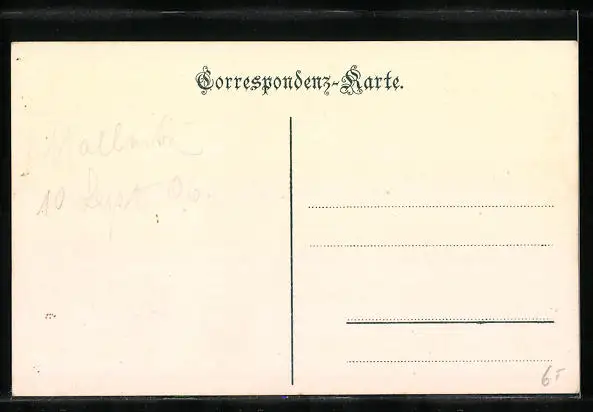 Correspondenz-Karte.
10 Sept 06.
6